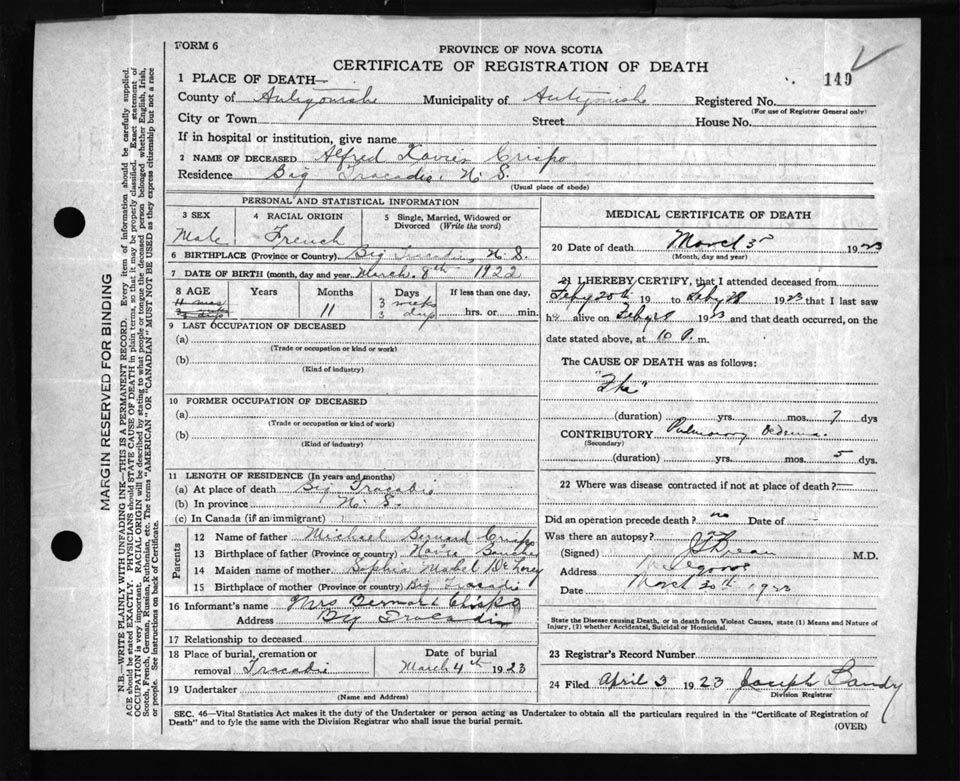 FORM 6
PROVINCE OF NOVA SCOTIA
CERTIFICATE OF REGISTRATION OF DEATH
149
1 PLACE OF DEATH—
County of Antigonish Municipality of Antigonish Registered No.
(For use of Registrar General only)
City or Town Street House No.
If in hospital or institution, give name
2 NAME OF DECEASED Alfred Xavier Crispo
Residence Big Tracadie, N. S.
(Usual place of abode)
PERSONAL AND STATISTICAL INFORMATION
3 SEX 4 RACIAL ORIGIN 5 Single, Married, Widowed or Divorced (Write the word)
Male French
6 BIRTHPLACE (Province or Country) Big Tracadie, N. S.
7 DATE OF BIRTH (month, day and year) March. 8th 1922
8 AGE Years Months Days If less than one day,
11 3 weeks 3 days hrs. or min.
9 LAST OCCUPATION OF DECEASED
(a)
(Trade or occupation or kind or work)
(b)
(Kind of industry)
10 FORMER OCCUPATION OF DECEASED
(a)
(Trade or occupation or kind or work)
(b)
(Kind of industry)
11 LENGTH OF RESIDENCE (In years and months)
(a) At place of death Big Tracadie
(b) In province N. S.
(c) In Canada (if an immigrant)
Parents
12 Name of father Michael Bernard Crispo
13 Birthplace of father (Province or country) Havre Boucher
14 Maiden name of mother Sophia Mabel DeLorey
15 Birthplace of mother (Province or country) Big Tracadie
16 Informant's name Mrs Bernard Crispo
Address Big Tracadie
17 Relationship to deceased
18 Place of burial, cremation or removal Tracadie
Date of burial March 4th 1923
19 Undertaker
(Name and Address)
MEDICAL CERTIFICATE OF DEATH
20 Date of death March 3rd 1923
(Month, day and year)
21 I HEREBY CERTIFY, that I attended deceased from
Feby 20th 19 to Feby 28 1923 that I last saw
h alive on Feby 28 1923 and that death occurred, on the
date stated above, at 10 P. m.
The CAUSE OF DEATH was as follows:
"Flu"
(duration) yrs. mos. 7 dys
CONTRIBUTORY Pulmonary Oedema.
(Secondary)
(duration) yrs. mos. 5 dys.
22 Where was disease contracted if not at place of death?
Did an operation precede death? no Date of
Was there an autopsy?
(Signed) M.D.
Address
Date March 30th 1923
State the Disease causing Death, or in death from Violent Causes, state (1) Means and Nature of Injury, (2) whether Accidental, Suicidal or Homicidal.
23 Registrar's Record Number
24 Filed April 3 1923 Joseph Landry
Division Registrar
SEC. 46—Vital Statistics Act makes it the duty of the Undertaker or person acting as Undertaker to obtain all the particulars required in the "Certificate of Registration of
Death" and to fyle the same with the Division Registrar who shall issue the burial permit.
(OVER)
MARGIN RESERVED FOR BINDING
N.B.—WRITE PLAINLY WITH UNFADING INK—THIS IS A PERMANENT RECORD. Every item of information should be carefully supplied.
AGE should be stated EXACTLY. PHYSICIANS should STATE CAUSE OF DEATH in plain terms, so that it may be properly classified. Exact statement of
OCCUPATION is very important. RACIAL ORIGIN will be described by stating to what people or tongue the deceased person belonged whether English, Irish,
Scotch, French, German, Russian, Ruthenian, etc. The terms "AMERICAN" OR "CANADIAN" MUST NOT BE USED as they express citizenship but not a race
or people. See instructions on back of Certificate.